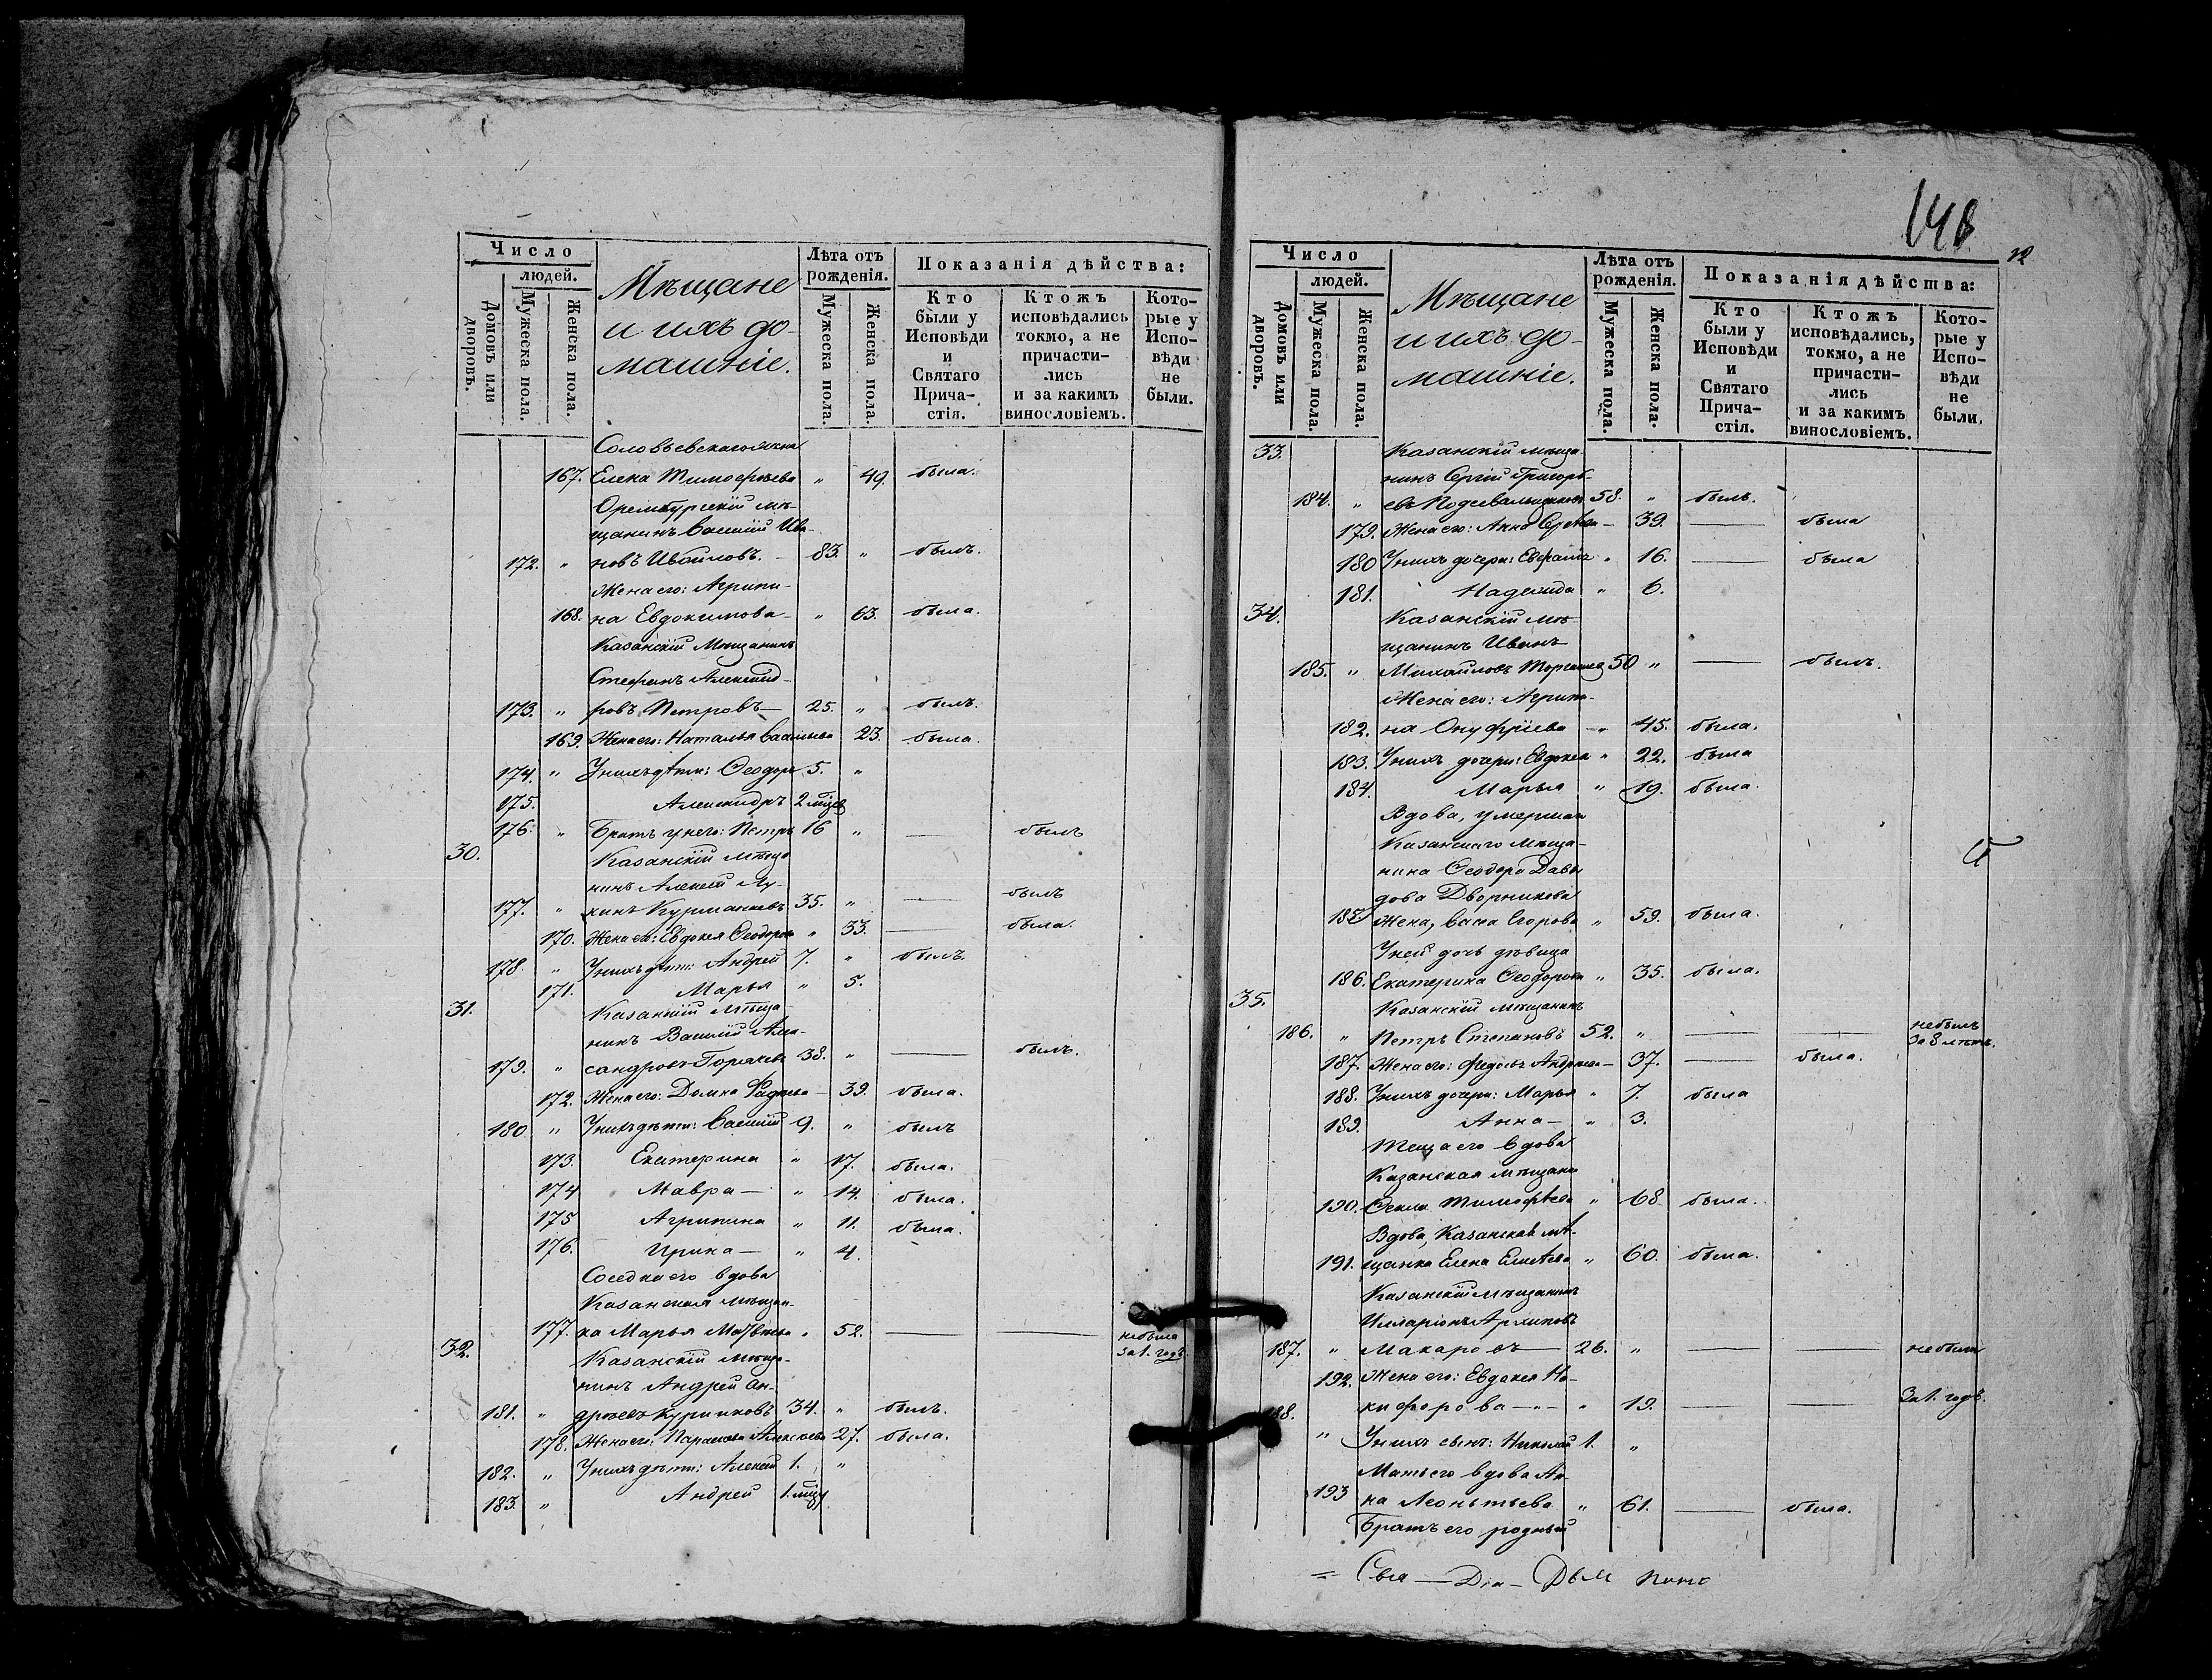 Число
людей.
Домовъ или дворовъ.
Мужеска пола.
Женска пола.
Мѣщане
и ихъ до-
машніе.
Лѣта отъ
рожденія.
Мужеска пола.
Женска пола.
Показанія дѣйства:
Кто
были у
Исповѣди
и
Святаго
Прича-
стія.
Ктожъ
исповѣдались
токмо, а не
причасти-
лись
и за какимъ
винословіемъ.
Кото-
рые у
Испо-
вѣди
не
были.
Соловьевскаго жена
167. Елена Тимофѣева " 49. была.
Оренбургскій мѣ-
щанинъ Василій Ива-
172. " новъ Ивайловъ. 83. " былъ.
Жена его: Агрипи-
168. на Евдокимова " 63. была.
Казанскій Мѣщанинъ
Стефанъ Александ-
173. " ровъ Петровъ 25. " былъ.
169. Жена его: Наталья Васильева 23. была.
174. " У нихъ дѣти: Ѳеодоръ 5. "
175. Александръ 2 мѣсяц
176. " Братъ у него: Петръ 16 " — былъ
30. Казанскій мѣща
нинъ Алексѣй Лу-
177. " кинъ Курманаевъ 35. " — былъ
170. Жена его: Евдокея Ѳеодорова " 33. — была.
178. " У нихъ дѣти: Андрей 7. " былъ.
171. Марья " 5.
31. Казанскій мѣща
нинъ Василій Алек-
179. " сандровъ Горяевъ 38. " — былъ.
172. Жена его: Домна Фадѣева — 39. была.
180 " У нихъ дѣти: Василій 9. " былъ
173. Екатерина " 17. была.
174 Мавра — " 14. была.
175 Агрипина " 11. была.
176. Ирина — " 4.
Соседка его вдова
Казанская мѣщан-
177. ка Марья Матвѣева " 52. — — не была
за 1. годъ.
32. Казанскій мѣща-
нинъ Андрей Ан-
181. " дреевъ Куриковъ 34. " былъ.
178. Жена его: Парасковья Алексѣева 27. была.
182. " У нихъ дѣти: Алексѣй 1. "
183. " Андрей 1. мѣсяц
148
12
Число
людей.
Домовъ или дворовъ.
Мужеска пола.
Женска пола.
Мѣщане
и ихъ до-
машніе.
Лѣта отъ
рожденія.
Мужеска пола.
Женска пола.
Показанія дѣйства:
Кто
были у
Исповѣди
и
Святаго
Прича-
стія.
Ктожъ
исповѣдались,
токмо, а не
причасти-
лись
и за какимъ
винословіемъ.
Кото-
рые у
Испо-
вѣди
не
были.
33. Казанскій мѣща
нинъ Сергій Григорь-
184. " евъ 58. " былъ.
179. Жена его: Анна — 39. — была
180 У нихъ дочери: Евфалія " 16. — была
181. Надежда " 6.
34. Казанскій мѣ
щанинъ Иванъ
185. " Михайловъ 50 " — былъ.
Жена его: Агрипи-
182. на Онуфріева " 45. была.
183. У нихъ дочери: Евдокея " 22. была
184. Марья " 19. была.
Вдова, умершаго
Казанскаго мѣща-
нина Ѳеодора Давы
дова Дворникова
185 Жена, Васса Егорова " 59. была.
У ней дочь дѣвица
186. Екатерина Ѳеодорова " 35. была.
35. Казанскій мѣщанинъ
186. " Петръ Степановъ 52. " — — не былъ
за 8 лѣтъ.
187. Жена его: Федосья Андреева — 37. — была.
188. У нихъ дочери: Марья " 7. была
189. Анна — " 3.
Теща его вдова
Казанская мѣщанка
190. Ѳекла Тимофѣева " 68 была.
Вдова, Казанская мѣ-
191. щанка Елена Елисѣева " 60. была.
Казанскій мѣщанинъ
Илларіонъ Архиповъ
187. " Макаровъ — 26. " — — не были
192. Жена его: Евдокея Ни-
кифорова — " 19. — — за 1. годъ.
188. " У нихъ сынъ: Николай 1. "
Мать его вдова Ан-
193 на Леонтьева " 61. — была.
Братъ его родный